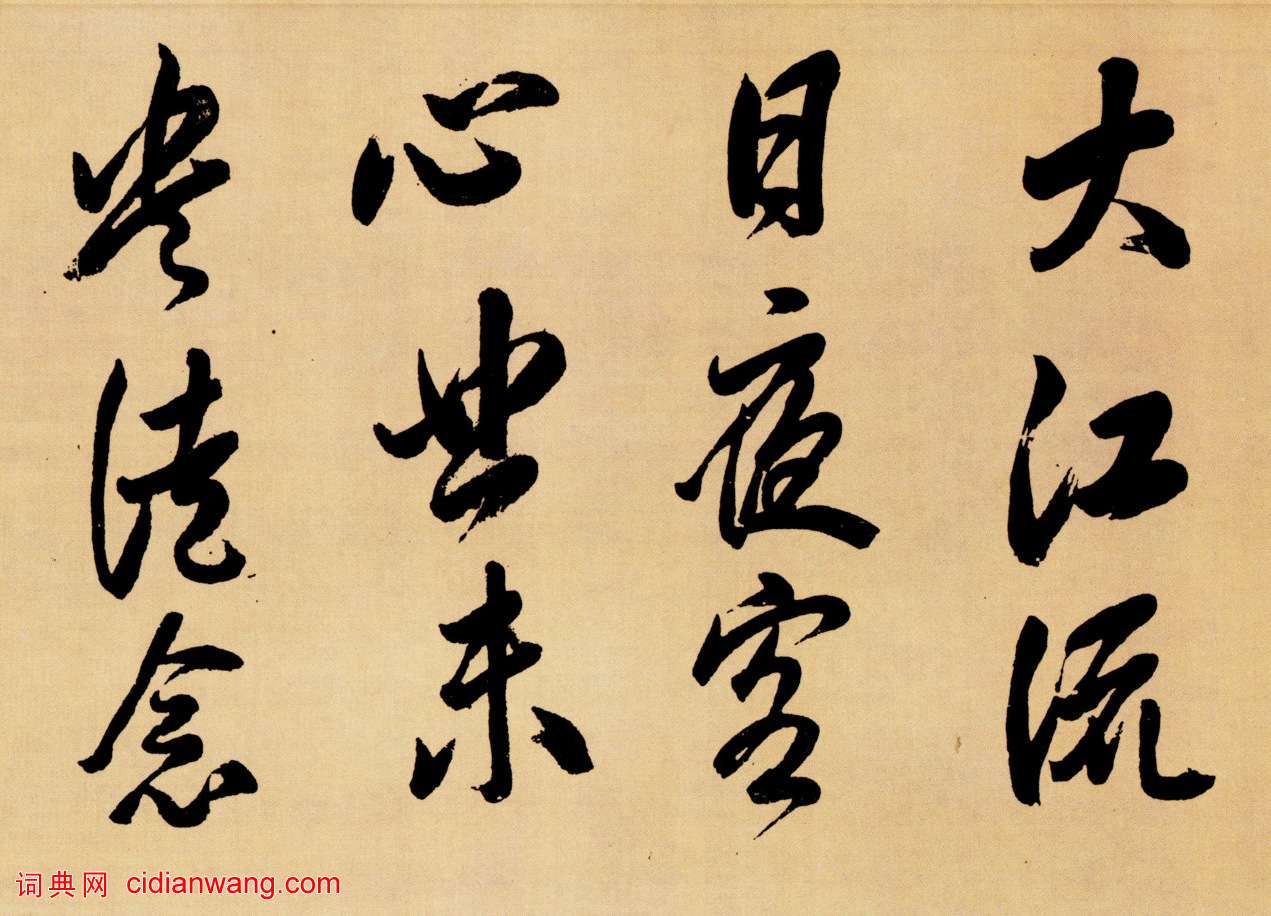 大江流
日夜客
心悲未
央徒念
词典网 cidianwang.com